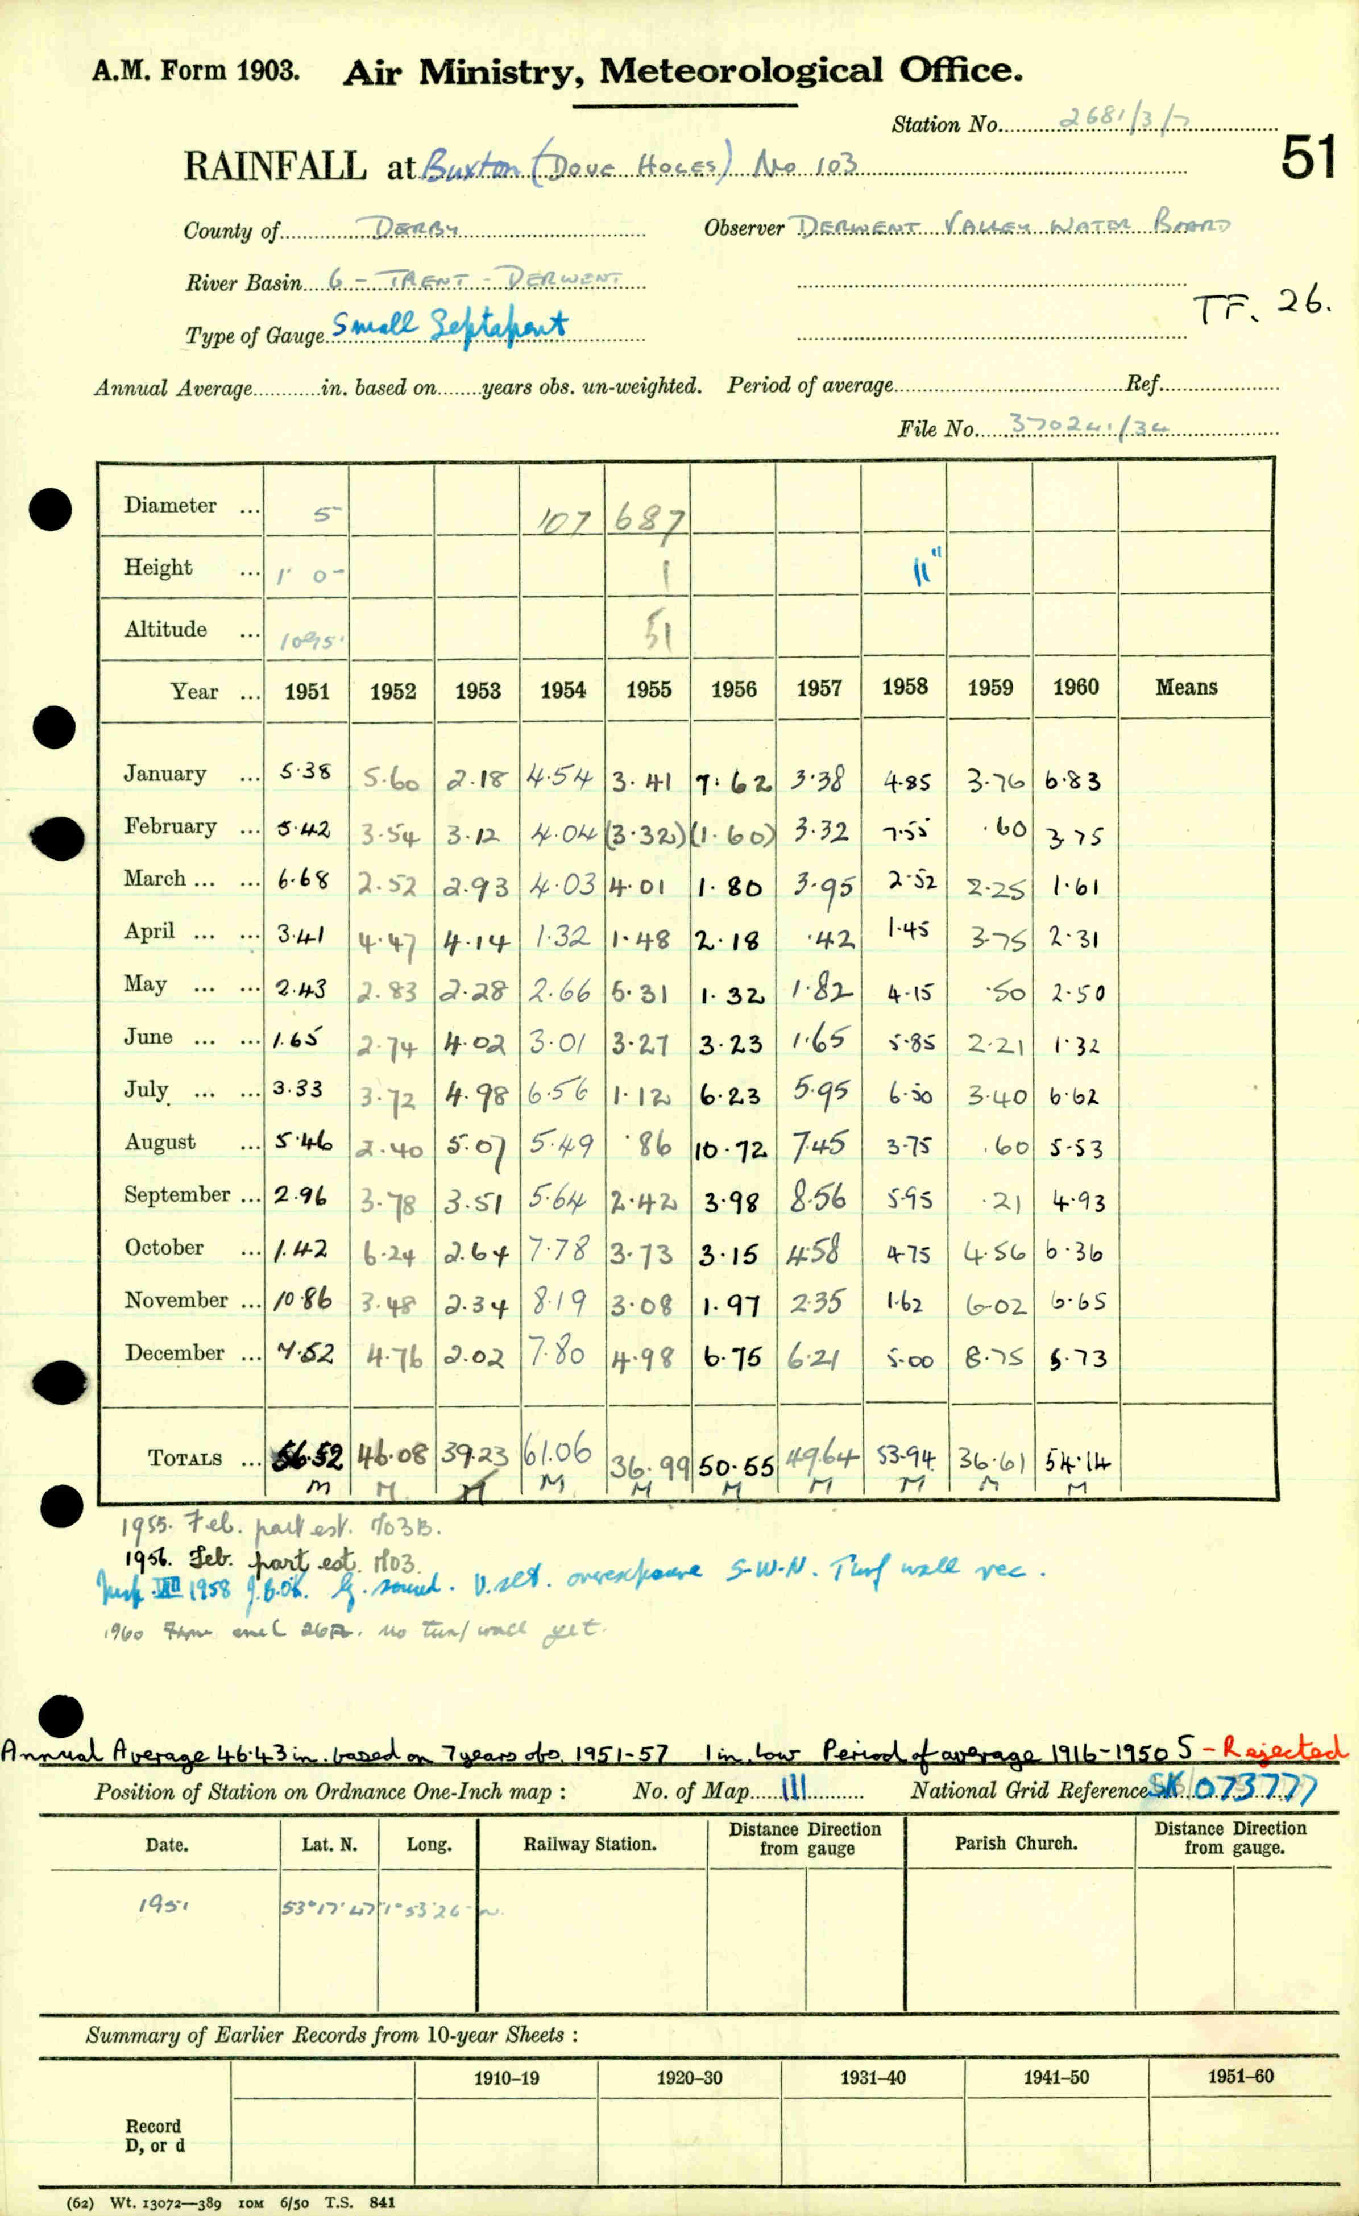 A.M. Form 1903. Air Ministry, Meteorological Office.
Station No. 2681/3/7
51
RAINFALL at Buxton (Dove Holes) No 103
County of DERBY Observer DERWENT VALLEY WATER BOARD
River Basin 6 - TRENT - DERWENT
TF. 26.
Type of Gauge Small Septapent
Annual Average in. based on years obs. un-weighted. Period of average Ref.
File No. 370241/34
Diameter ... 5 107 687
Height ... 1' 0" 1 11"
Altitude ... 1095' 51
Year ... 1951 1952 1953 1954 1955 1956 1957 1958 1959 1960 Means
January ... 5.38 5.60 2.18 4.54 3.41 7.62 3.38 4.85 3.76 6.83
February ... 5.42 3.54 3.12 4.04 (3.32) (1.60) 3.32 7.55 .60 3.75
March ... ... 6.68 2.52 2.93 4.03 4.01 1.80 3.95 2.52 2.25 1.61
April ... ... 3.41 4.47 4.14 1.32 1.48 2.18 .42 1.45 3.75 2.31
May ... ... 2.43 2.83 2.28 2.66 5.31 1.32 1.82 4.15 .50 2.50
June ... ... 1.65 2.74 4.02 3.01 3.27 3.23 1.65 5.85 2.21 1.32
July ... ... 3.33 3.72 4.98 6.56 1.12 6.23 5.95 6.50 3.40 6.62
August ... 5.46 2.40 5.07 5.49 .86 10.72 7.45 3.75 .60 5.53
September ... 2.96 3.78 3.51 5.64 2.42 3.98 8.56 5.95 .21 4.93
October ... 1.42 6.24 2.64 7.78 3.73 3.15 4.58 4.75 4.56 6.36
November ... 10.86 3.48 2.34 8.19 3.08 1.97 2.35 1.62 6.02 6.65
December ... 7.52 4.76 2.02 7.80 4.98 6.75 6.21 5.00 8.75 5.73
TOTALS ... 56.52 46.08 39.23 61.06 36.99 50.55 49.64 53.94 36.61 54.14
M M M M M M M M M M
1955. Feb. part est. No3B.
1956. Feb. part est. No3.
Insp. VIII 1958 J.B.OK. G. sound. V. set. overexposure S-W-N. Turf wall rec.
1960 encl 26A. no turf wall yet.
Annual Average 46.43 in. based on 7 years obs. 1951-57 1 in. low Period of average 1916-1950 S - Rejected
Position of Station on Ordnance One-Inch map : No. of Map 111 National Grid Reference SK 073777
Date. Lat. N. Long. Railway Station. Distance from gauge Direction Parish Church. Distance from gauge. Direction
1951 53°17'47" 1°53'26" W.
Summary of Earlier Records from 10-year Sheets :
1910-19 1920-30 1931-40 1941-50 1951-60
Record
D, or d
(62) Wt. 13072—389 10M 6/50 T.S. 841